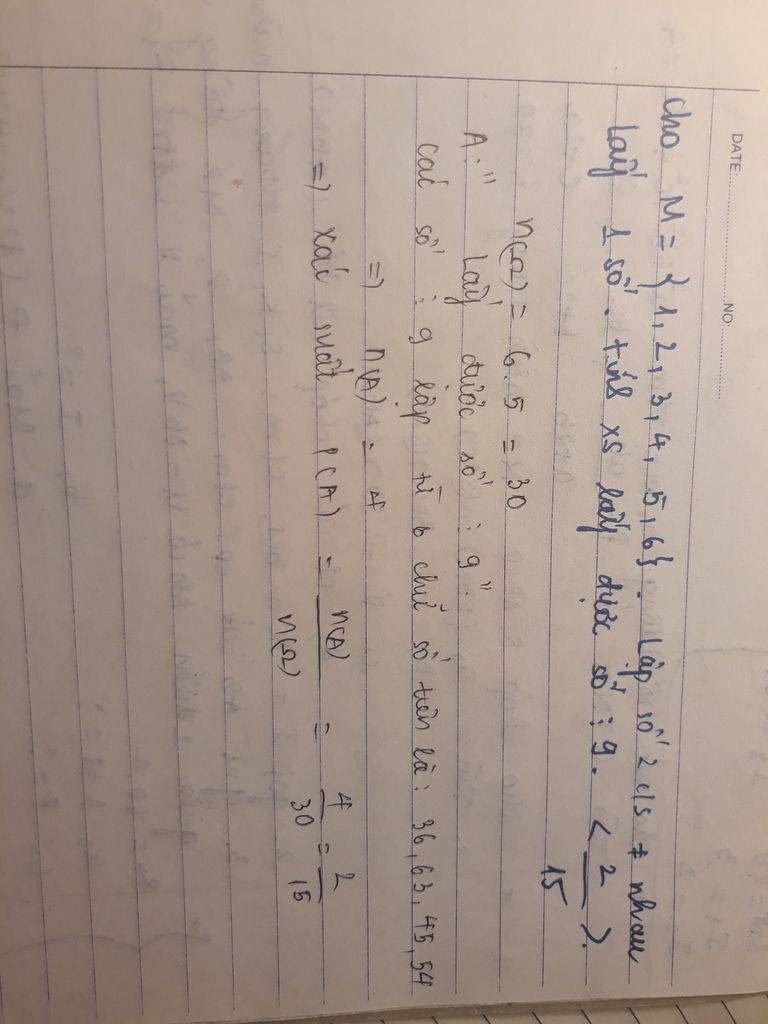 DATE: NO:
Cho M = { 1, 2, 3, 4, 5, 6}. Lập số 2 c/s ≠ nhau
Lấy 1 số. tính xs lấy được số ⋮ 9. < 2/15 >.
n(Ω) = 6.5 = 30
A: " Lấy được số ⋮ 9".
các số ⋮ 9 lập từ 6 chữ số trên là: 36, 63, 45, 54
=> n(A) = 4
=> xác suất P(A) = n(A)/n(Ω) = 4/30 = 2/15